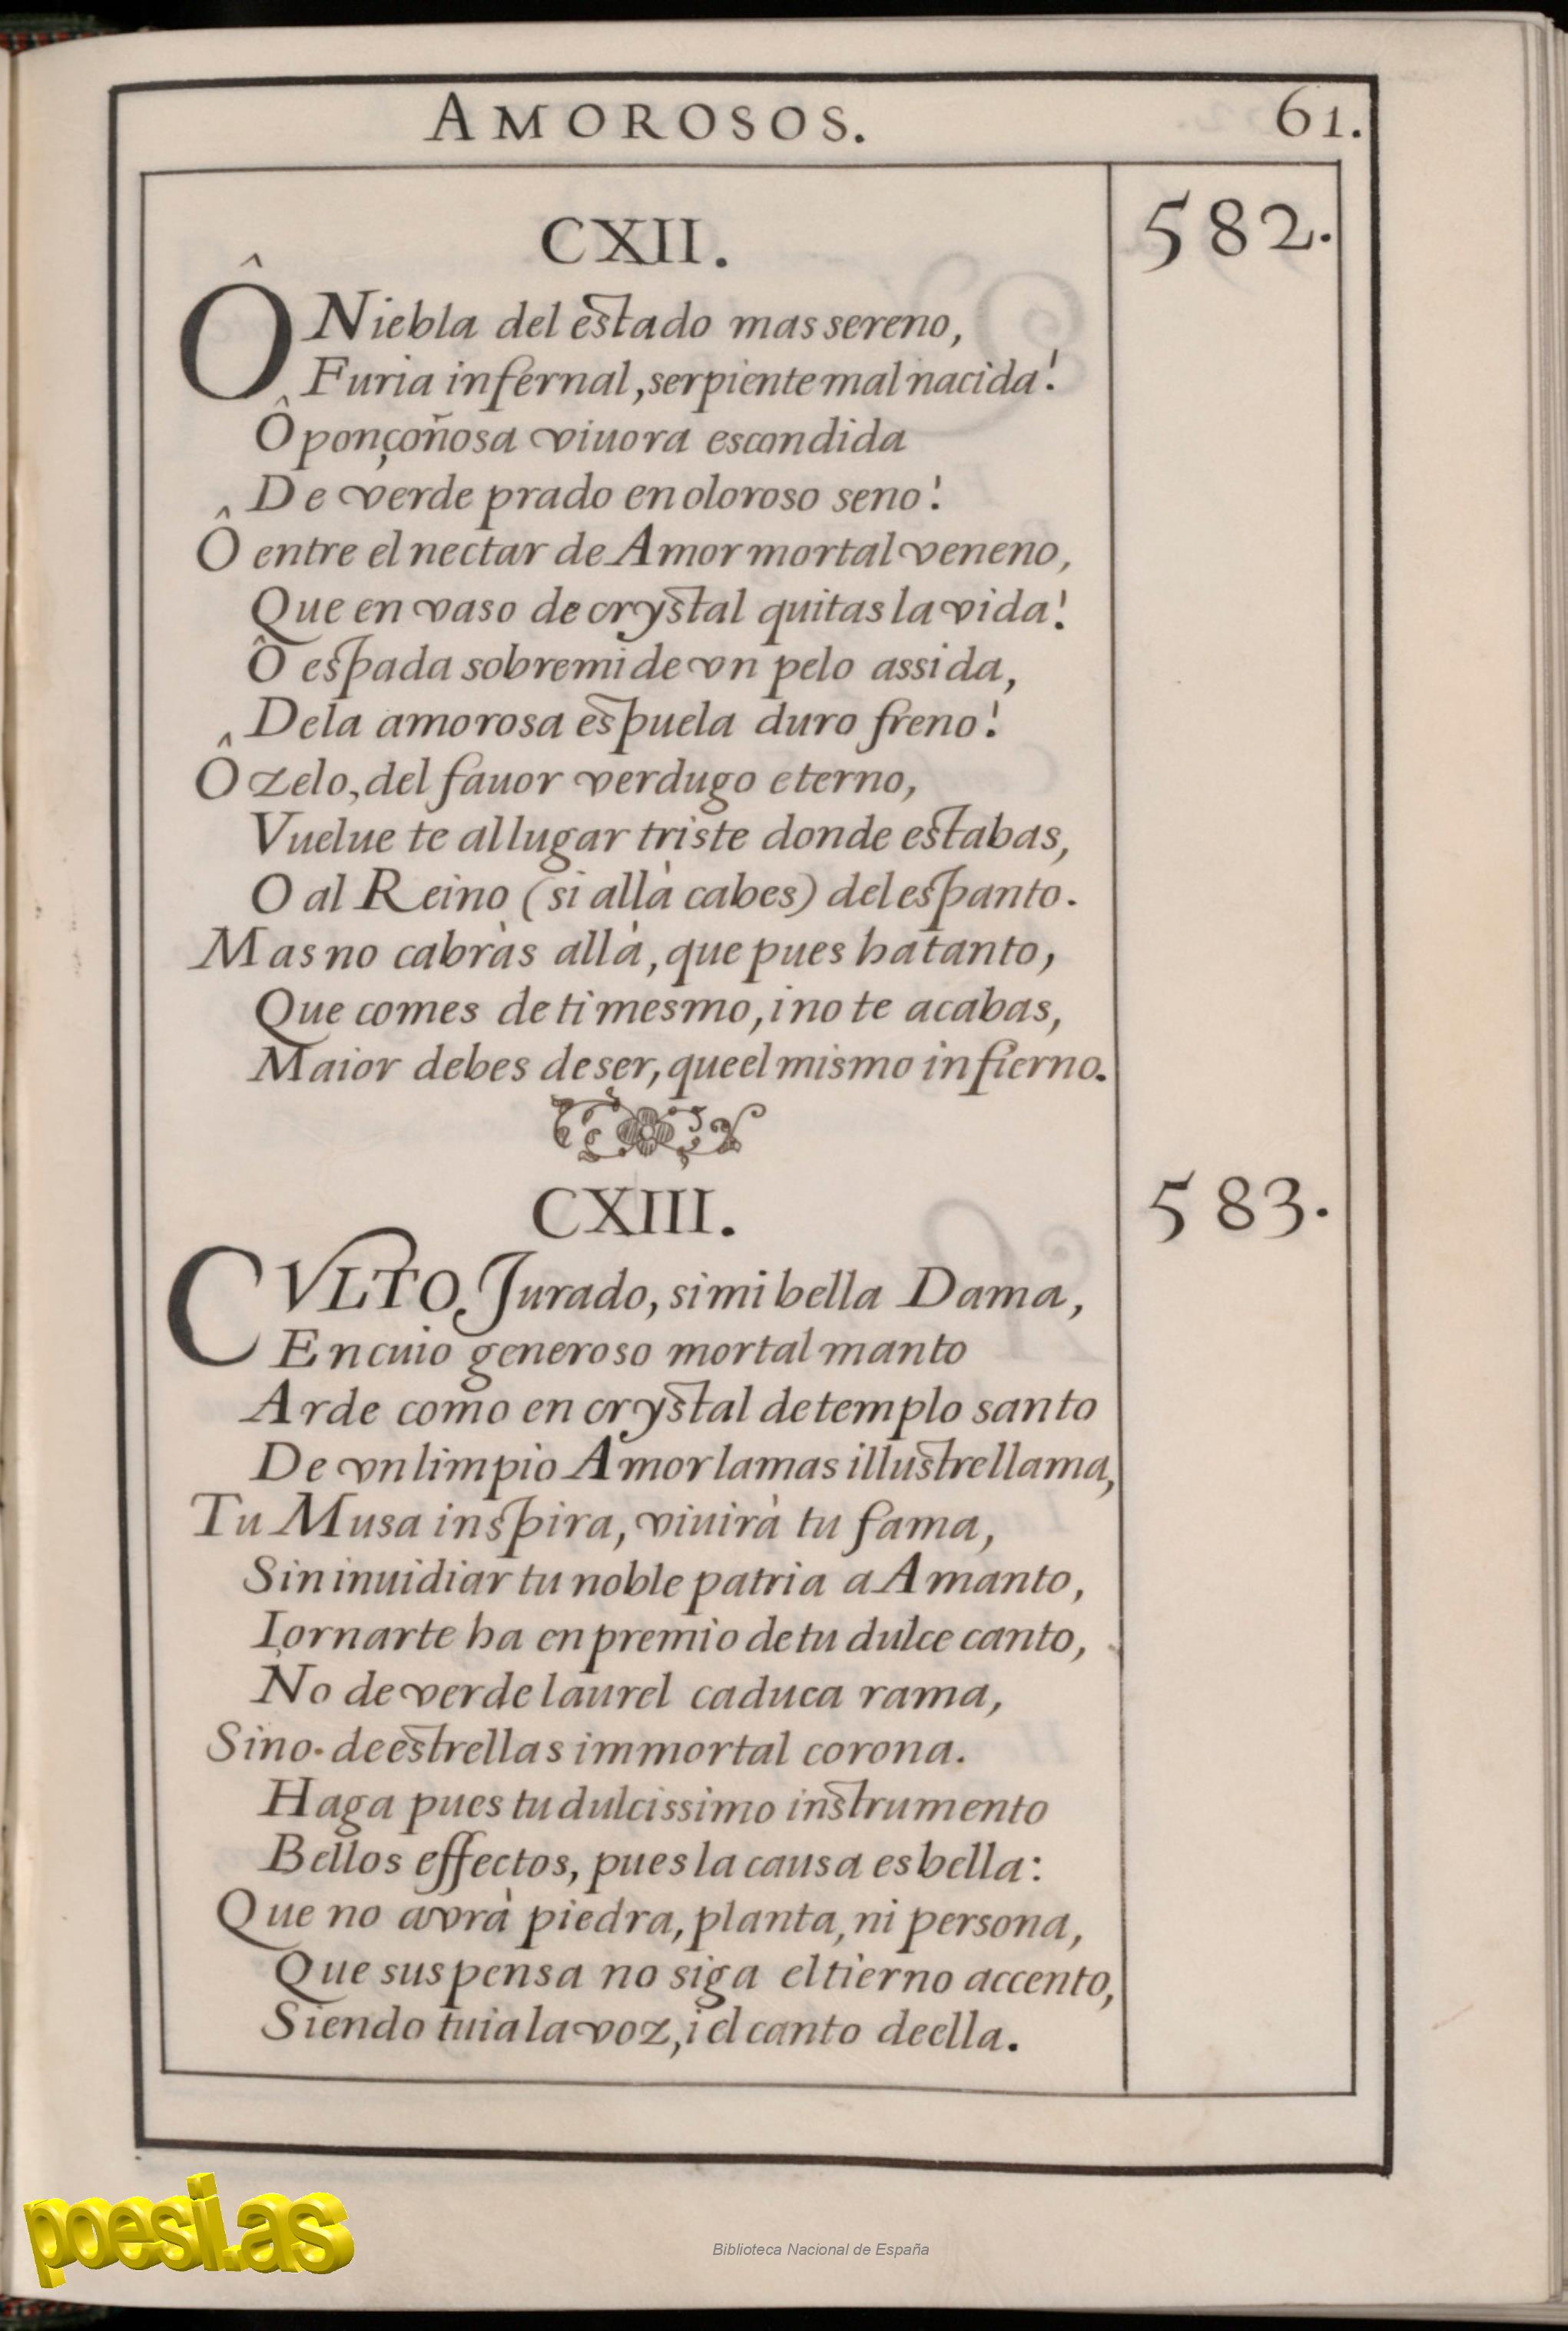 AMOROSOS. 61.
CXII. 582.
Ô Niebla del estado mas sereno,
Furia infernal, serpiente mal nacida!
Ô ponçoñosa viuora escondida
De verde prado en oloroso seno!
Ô entre el nectar de Amor mortal veneno,
Que en vaso de crystal quitas la vida!
Ô espada sobre mi de vn pelo assida,
De la amorosa espuela duro freno!
Ô zelo, del fauor verdugo eterno,
Vuelue te al lugar triste donde estabas,
O al Reino (si allà cabes) del espanto.
Mas no cabràs allà, que pues ha tanto,
Que comes de ti mesmo, i no te acabas,
Maior debes de ser, que el mismo infierno.
CXIII. 583.
CVLTO Jurado, si mi bella Dama,
En cuio generoso mortal manto
Arde como en crystal de templo santo
De vn limpio Amor la mas illustre llama,
Tu Musa inspira, viuirà tu fama,
Sin inuidiar tu noble patria a Amanto,
I ornarte ha en premio de tu dulce canto,
No de verde laurel caduca rama,
Sino de estrellas immortal corona.
Haga pues tu dulcissimo instrumento
Bellos effectos, pues la causa es bella:
Que no avrà piedra, planta, ni persona,
Que suspensa no siga el tierno accento,
Siendo tuia la voz, i el canto de ella.
poesi.as
Biblioteca Nacional de España